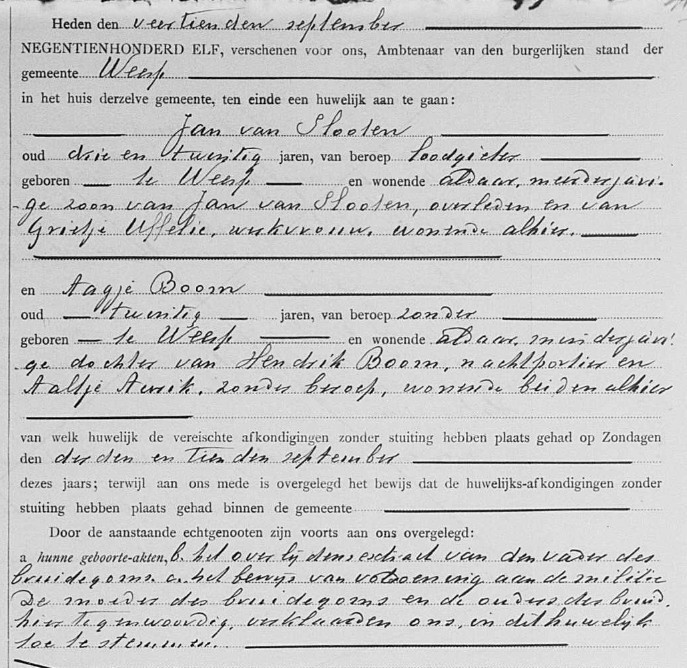 Heden den veertienden september
NEGENTIENHONDERD ELF, verschenen voor ons, Ambtenaar van den burgerlijken stand der
gemeente Weesp
in het huis derzelve gemeente, ten einde een huwelijk aan te gaan:
Jan van Slooten
oud drie en twintig jaren, van beroep loodgieter
geboren te Weesp en wonende aldaar, meerderjari-
ge zoon van Jan van Slooten, overleden en van
Grietje Uffelie, werkvrouw, wonende alhier.
en Aagje Boom
oud twintig jaren, van beroep zonder
geboren te Weesp en wonende aldaar, minderjari-
ge dochter van Hendrik Boom, nachtportier en
Aaltje Aurik, zonder beroep, wonende beiden alhier
van welk huwelijk de vereischte afkondigingen zonder stuiting hebben plaats gehad op Zondagen
den derden en tienden september
dezes jaars; terwijl aan ons mede is overgelegd het bewijs dat de huwelijks-afkondigingen zonder
stuiting hebben plaats gehad binnen de gemeente
Door de aanstaande echtgenooten zijn voorts aan ons overgelegd:
a hunne geboorte-akten, b. het overlijdensextract van den vader des
bruidegoms c. het bewijs van voldoening aan de militie
De moeder des bruidegoms en de ouders der bruid,
hier tegenwoordig, verklaarden ons, in dit huwelijk
toe te stemmen.